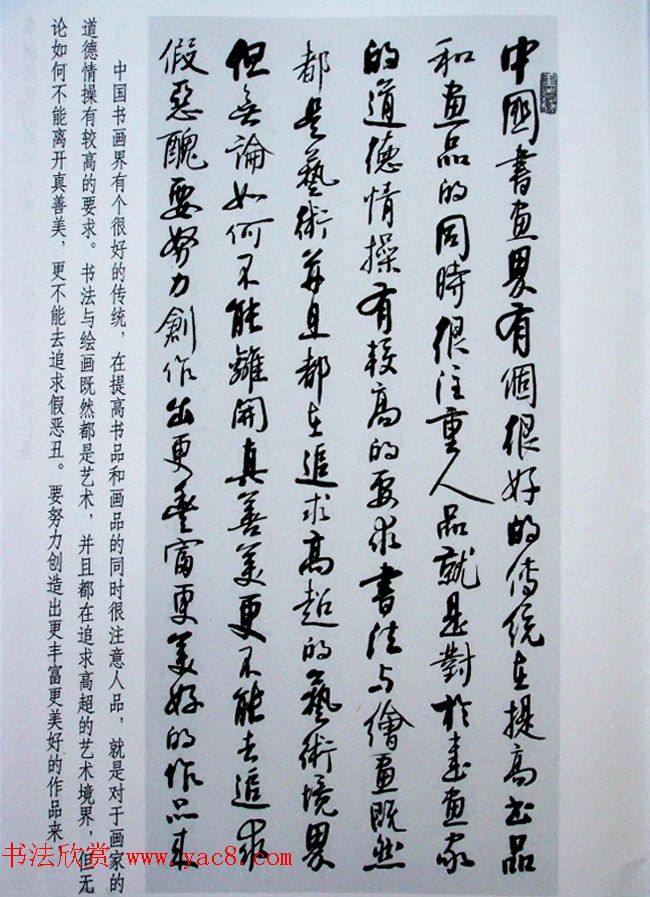 中國書畫界有個很好的傳統在提高書品
和畫品的同時很注重人品就是對於書畫家
的道德情操有較高的要求書法与繪畫既然
都是藝術并且都在追求高超的藝術境界
但無論如何不能離開真善美更不能去追求
假惡醜要努力創作出更豐富更美好的作品來
中国书画界有个很好的传统，在提高书品和画品的同时很注意人品，就是对于画家的
道德情操有较高的要求。书法与绘画既然都是艺术，并且都在追求高超的艺术境界，但无
论如何不能离开真善美，更不能去追求假恶丑。要努力创造出更丰富更美好的作品来
书法欣赏 www.yac8.com